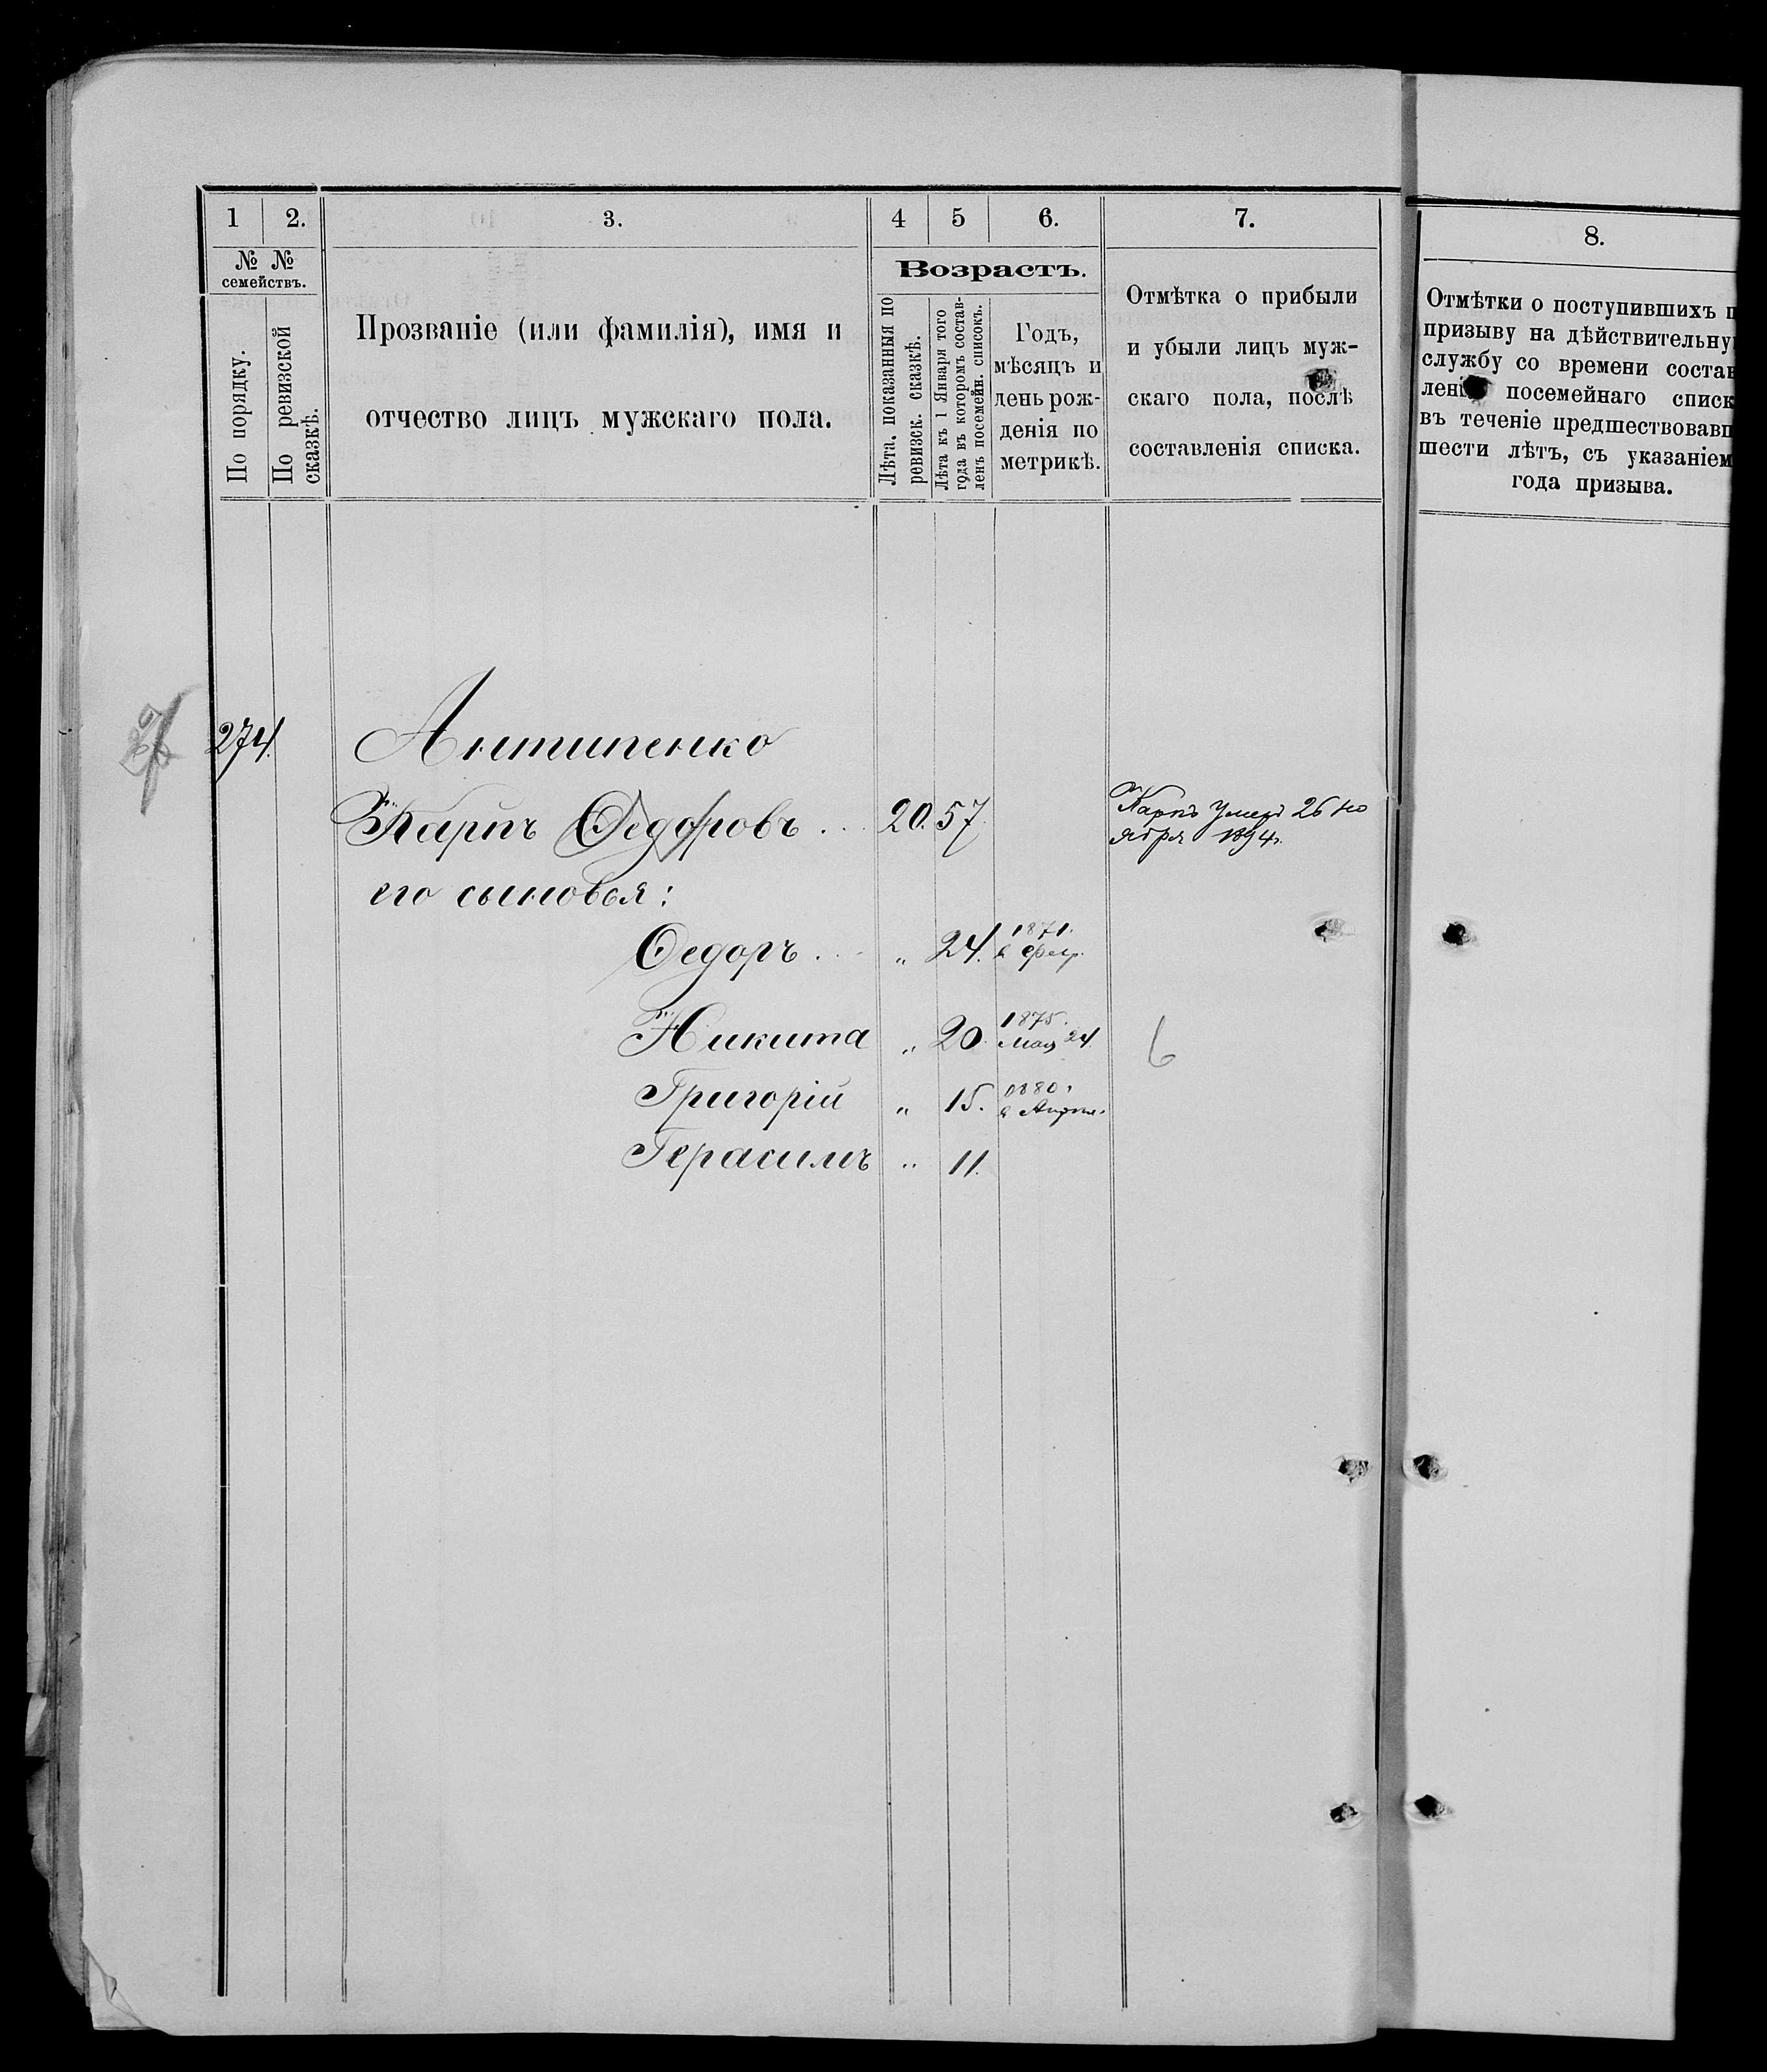 1
2.
3.
4
5
6.
7.
8.
№ №
семействъ.
По порядку.
По ревизской
сказкѣ.
Прозваніе (или фамилія), имя и
отчество лицъ мужскаго пола.
Возрастъ.
Лѣта, показанныя по
ревизск. сказкѣ.
Лѣта къ 1 Января того
года въ которомъ состав-
ленъ посемейн. списокъ.
Годъ,
мѣсяцъ и
день рож-
денія по
метрикѣ.
Отмѣтка о прибыли
и убыли лицъ муж-
скаго пола, послѣ
составленія списка.
Отмѣтки о поступившихъ п
призыву на дѣйствительну
службу со времени состав
ленія посемейнаго списк
въ теченіе предшествовавш
шести лѣтъ, съ указаніем
года призыва.
274.
Антипенко
Карпъ Федоровъ . . . 20. 57.
Карпъ умеръ 26 но
ября 1894г.
его сыновья:
Федоръ . . . „ 24. 1871.
Никита „ 20. 1875.
Мая 24.
6
Григорій „ 15. 1880.
Герасимъ „ 11.